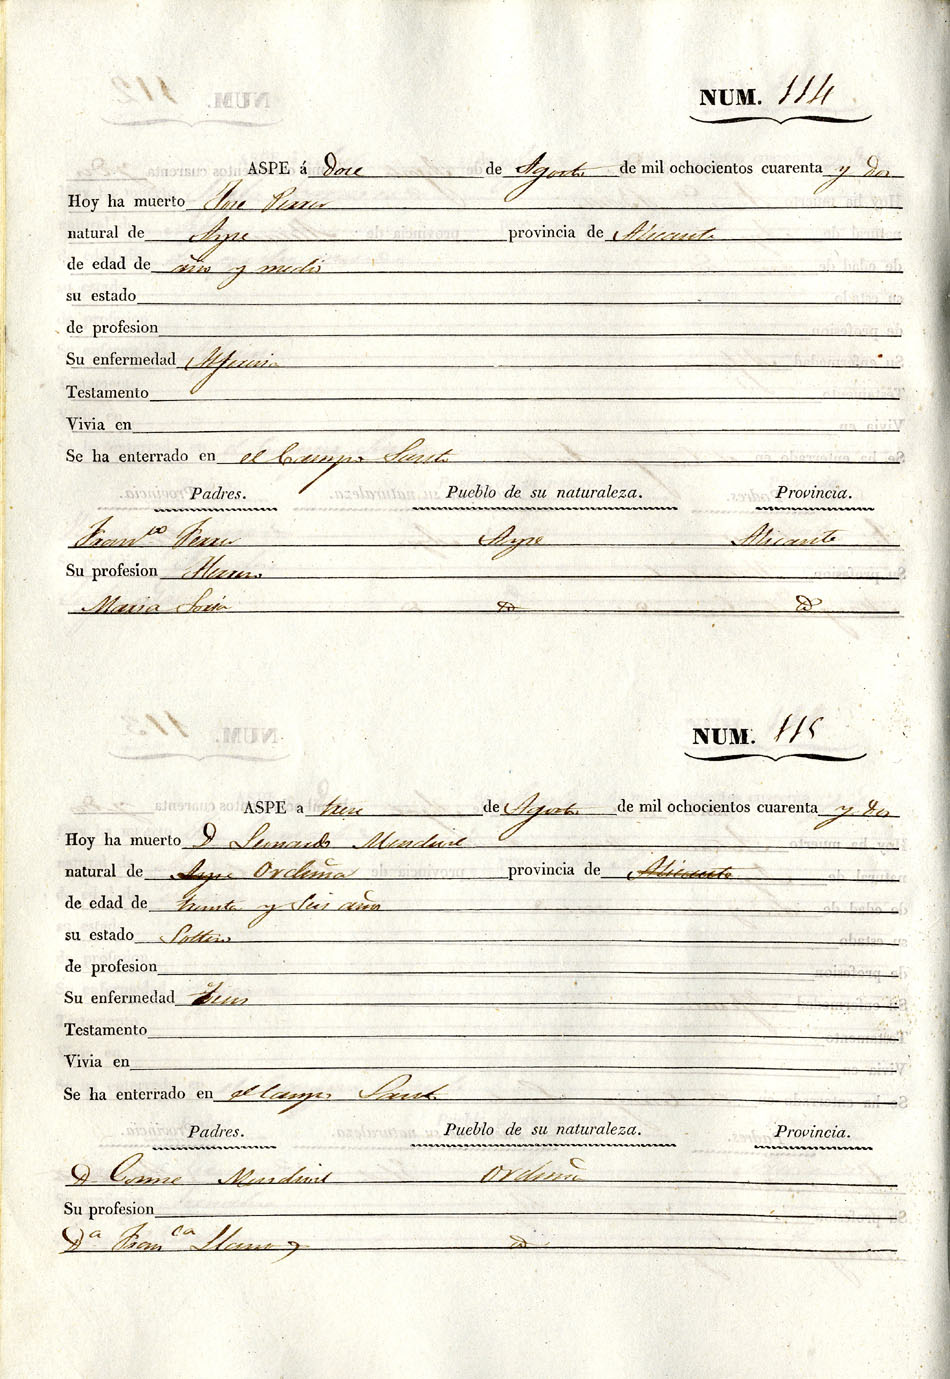 NUM. 114
ASPE á Doce de Agosto de mil ochocientos cuarenta y dos
Hoy ha muerto Jose Ferrer
natural de Aspe provincia de Alicante
de edad de año y medio
su estado
de profesion
Su enfermedad
Testamento
Vivia en
Se ha enterrado en el Campo Santo
Padres. Pueblo de su naturaleza. Provincia.
Franco Ferrer Aspe Alicante
Su profesion
Maria
NUM. 115
ASPE a trece de Agosto de mil ochocientos cuarenta y dos
Hoy ha muerto D Leonardo Mendivil
natural de Aspe Orduña provincia de Alicante
de edad de treinta y seis años
su estado Soltero
de profesion
Su enfermedad
Testamento
Vivia en
Se ha enterrado en el Campo Santo
Padres. Pueblo de su naturaleza. Provincia.
D Cosme Mendivil Orduña
Su profesion
Da Franca Llano